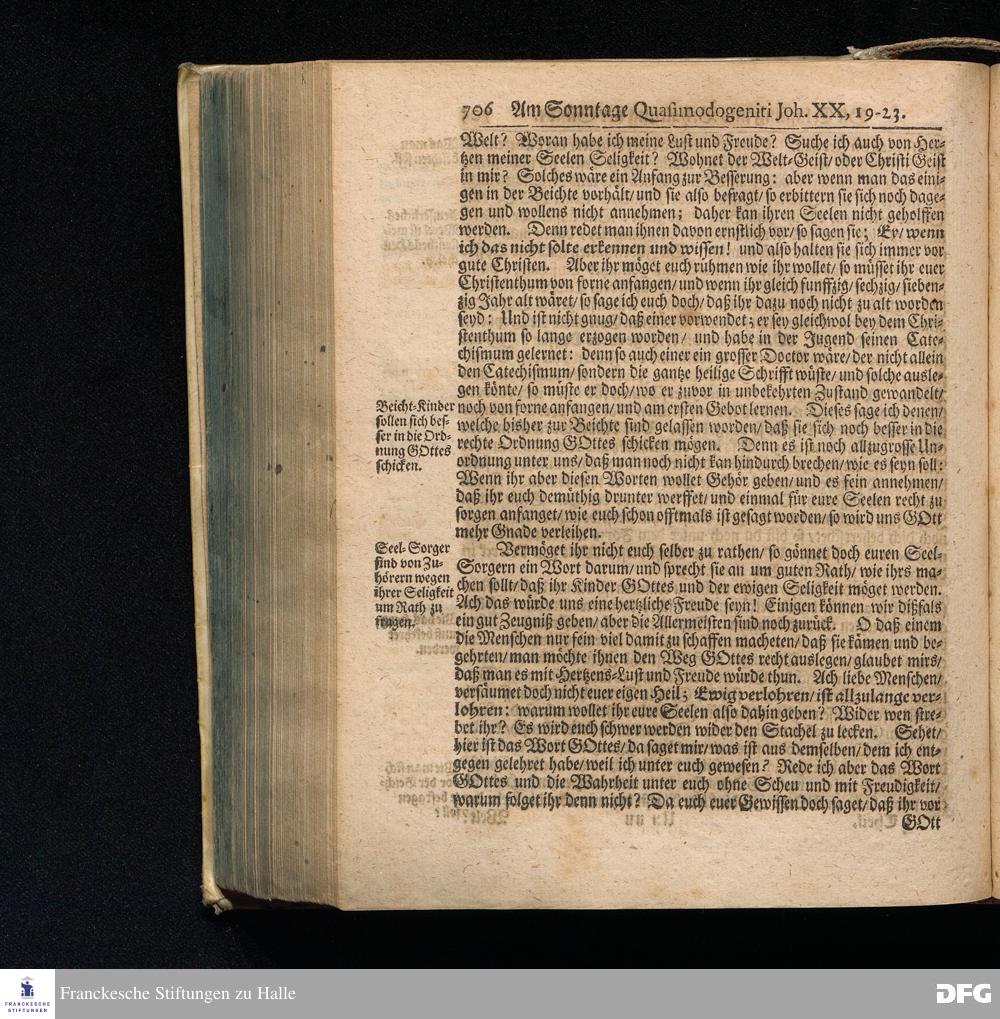 706 Am Sonntage Quasimodogeniti Joh. XX, 19-23.
Welt? Woran habe ich meine Lust und Freude? Suche ich auch von Her-
tzen meiner Seelen Seligkeit? Wohnet der Welt-Geist/ oder Christi Geist
in mir? Solches wäre ein Anfang zur Besserung: aber wenn man das eini-
gen in der Beichte vorhält/ und sie also befragt/ so erbittern sie sich noch dage-
gen und wollens nicht annehmen; daher kan ihren Seelen nicht geholffen
werden. Denn redet man ihnen davon ernstlich vor/ so sagen sie; Ey/ wenn
ich das nicht solte erkennen und wissen! und also halten sie sich immer vor
gute Christen. Aber ihr möget euch rühmen wie ihr wollet/ so müsset ihr euer
Christenthum von forne anfangen/ und wenn ihr gleich funffzig/ sechzig/ sieben-
zig Jahr alt wäret/ so sage ich euch doch/ daß ihr dazu noch nicht zu alt worden
seyd: Und ist nicht gnug/ daß einer vorwendet; er sey gleichwol bey dem Chri-
stenthum so lange erzogen worden/ und habe in der Jugend seinen Cate-
chismum gelernet: denn so auch einer ein grosser Doctor wäre/ der nicht allein
den Catechismum/ sondern die gantze heilige Schrifft wüste/ und solche ausle-
gen könte/ so müste er doch/ wo er zuvor in unbekehrten Zustand gewandelt/
noch von forne anfangen/ und am ersten Gebot lernen. Dieses sage ich denen/
welche bisher zur Beichte sind gelassen worden/ daß sie sich noch besser in die
rechte Ordnung GOttes schicken mögen. Denn es ist noch allzugrosse Un-
ordnung unter uns/ daß man noch nicht kan hindurch brechen/ wie es seyn soll:
Wenn ihr aber diesen Worten wollet Gehör geben/ und es fein annehmen/
daß ihr euch demüthig drunter werffet/ und einmal für eure Seelen recht zu
sorgen anfanget/ wie euch schon offtmals ist gesagt worden/ so wird uns GOtt
mehr Gnade verleihen.
Beicht-Kinder
sollen sich bes-
ser in die Ord-
nung GOttes
schicken.
Vermöget ihr nicht euch selber zu rathen/ so gönnet doch euren Seel-
Sorgern ein Wort darum/ und sprecht sie an um guten Rath/ wie ihrs ma-
chen sollt/ daß ihr Kinder GOttes und der ewigen Seligkeit möget werden.
Ach das würde uns eine hertzliche Freude seyn! Einigen können wir dißfals
ein gut Zeugniß geben/ aber die Allermeisten sind noch zurück. O daß einem
die Menschen nur fein viel damit zu schaffen macheten/ daß sie kämen und be-
gehrten/ man möchte ihnen den Weg GOttes recht auslegen/ glaubet mirs/
daß man es mit Hertzens-Lust und Freude würde thun. Ach liebe Menschen/
versäumet doch nicht euer eigen Heil; Ewig verlohren/ ist allzulange ver-
lohren: warum wollet ihr eure Seelen also dahin geben? Wider wen stre-
bet ihr? Es wird euch schwer werden wider den Stachel zu lecken. Sehet/
hier ist das Wort GOttes/ da saget mir/ was ist aus demselben/ dem ich ent-
gegen gelehret habe/ weil ich unter euch gewesen? Rede ich aber das Wort
GOttes und die Wahrheit unter euch ohne Scheu und mit Freudigkeit/
warum folget ihr denn nicht? Da euch euer Gewissen doch saget/ daß ihr vor
GOtt
Seel-Sorger
sind von Zu-
hörern wegen
ihrer Seligkeit
um Rath zu
fragen.
FRANCKESCHE
STIFTUNGEN
Franckesche Stiftungen zu Halle
DFG